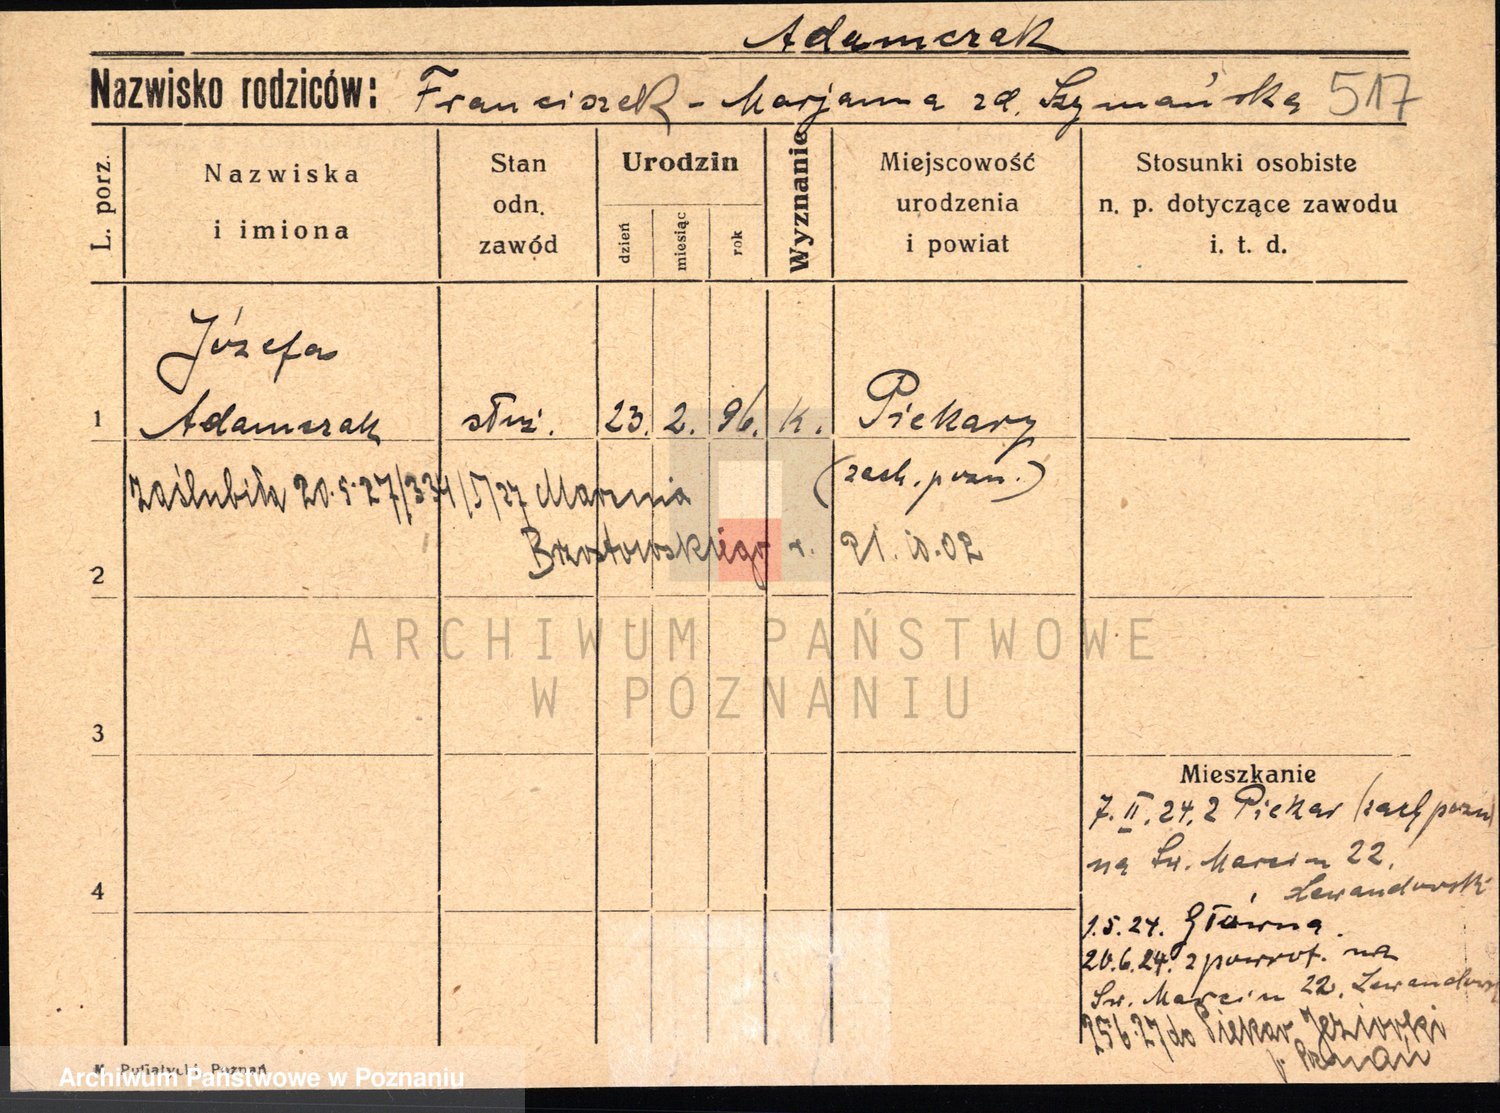 Adamczak
Nazwisko rodziców: Franciszek - Marjanna zd. Szymańska 517
L. porz.
Nazwiska
i imiona
Stan
odn.
zawód
Urodzin
dzień
miesiąc
rok
Wyznanie
Miejscowość
urodzenia
i powiat
Stosunki osobiste
n. p. dotyczące zawodu
i. t. d.
Józefa
1 Adamczak służ. 23. 2. 96. k. Piekary
(zach. pozn.)
zaślubiła 20.5.27/334/5/27 Marcina
Brzostowskiego r. 21.10.02
2
ARCHIWUM PAŃSTWOWE
W POZNANIU
3
Mieszkanie
7.II.24. z Piekar (zach pozn)
na Św. Marcin 22.
Lewandowski
4
1.5.24. Główna.
20.6.24. zpowrot. na
Św. Marcin 22. Lewandows
25.6.27 do Piekar
p. Poznań
Poznań
Archiwum Państwowe w Poznaniu